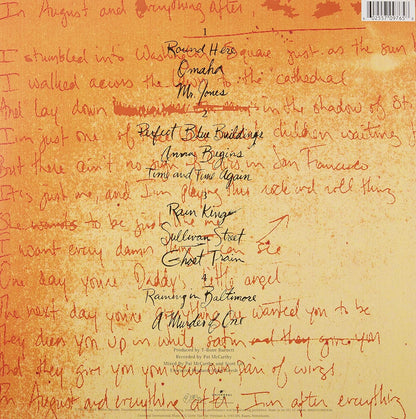 In August and everything after
1
I stumbled into Washington Square just as the sun
Round Here
Omaha
I walked across the to the cathedral
Mr. Jones
And lay down in the shadow of St
2
I'm just one of children waiting
Perfect Blue Buildings
Anna Begins
But there ain't no in San Francisco
Time and Time Again
It's just me, and I'm playing this rock and roll thing
3
Rain King
She wants to be just like me
Sullivan Street
I want every damn thing I can see
Ghost Train
One day you're Daddy's little angel
4
Raining in Baltimore
The next day you're wanted you to be
A Murder of One
They dress you up in white satin
Produced by T-Bone Burnett
Recorded by Pat McCarthy
And they give you your own pair of wings
In August and everything after I'm after everything